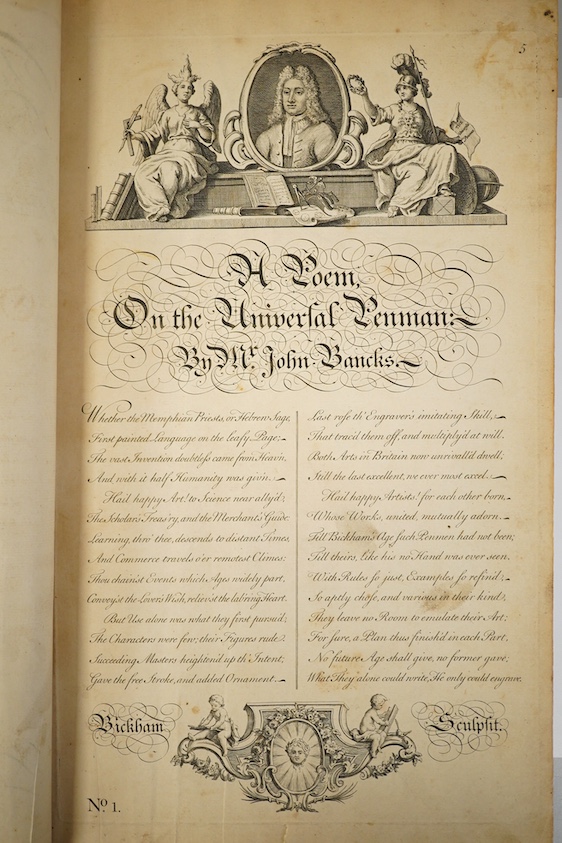 5
A Poem,
On the Universal Penman:
By Mr. John Bancks.
Whether the Memphian Priests, or Hebrew Sage,
First painted Language on the Leafy Page;
The vast Invention doubtless came from Heav'n,
And with it half Humanity was giv'n.
Hail happy Art! to Science near ally'd;
The Scholar's Treas'ry, and the Merchant's Guide:
Learning, thro' thee, descends to distant Times,
And Commerce travels o'er remotest Climes:
Thou chainist Events which Ages widely part,
Convey'st the Lover's Wish, reliev'st the lab'ring Heart.
But Use alone was what they first pursu'd;
The Characters were few; their Figures rude:
Succeeding Masters heighten'd up th' Intent;
Gave the free Stroke, and added Ornament.
Last rose th' Engraver's imitating Skill,
That trac'd them off, and multiply'd at will.
Both Arts in Britain now unrivall'd dwell;
Still the last excellent, we ever most excel.
Hail happy Artists! for each other born,
Whose Works, united, mutually adorn.
Till Bickham's Age such Penmen had not been;
Till theirs, like his no Hand was ever seen.
With Rules so just, Examples so refin'd;
So aptly chose, and various in their kind,
They leave no Room to emulate their Art;
For sure, a Plan thus finish'd in each Part,
No future Age shall give, no former gave;
What They alone could write, He only could engrave.
Bickham Sculpsit.
No. 1.